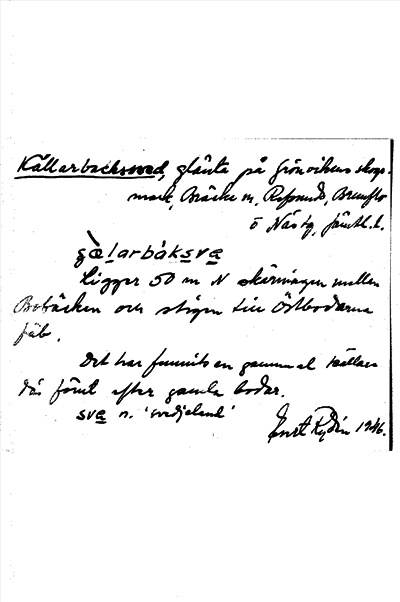 Källarbacksved, glänta på Grönvikens skogs-
mark, Bräcke m, Refsunds, Brunflo
o Näs tg, Jämtl. l.
gælarbáksva
Ligger 50 m N skärningen mellan
Bobäcken och stigen till Östbodarna
fäb.
Det har funnits en gammal källare
där förut efter gamla bodar.
sva n. 'svedjeland'
Rydén 1946.